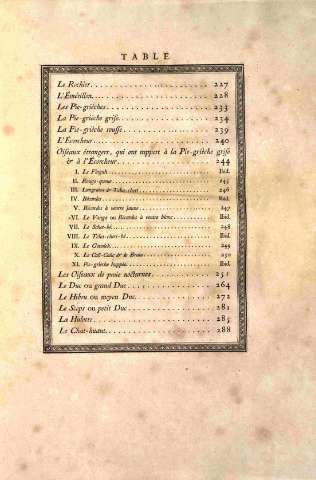 TABLE
Le Rochier 227
L'Émérillon 228
Les Pie-grièches 233
La Pie-grièche grise 234
La Pie-grièche rousse 239
L'Écorcheur 240
Oiseaux étrangers, qui ont rapport à la Pie-grièche grise
& à l'Écorcheur 244
I. Le Fingah Ibid.
II. Rouge-queue 245
III. Langraien & Tcha-chert 246
IV. Bécardes Ibid.
V. Bécarde à ventre jaune 247
VI. Le Vanga ou Bécarde à ventre blanc Ibid.
VII. Le Schet-bé 248
VIII. Le Tcha-chert-bé Ibid.
IX. Le Gonolek 249
X. Le Cali-Calic & le Bruia 250
XI. Pie-grièche huppée Ibid.
Les Oiseaux de proie nocturnes 251
Le Duc ou grand Duc 264
Le Hibou ou moyen Duc 272
Le Scops ou petit Duc 281
La Hulotte 285
Le Chat-huant 288